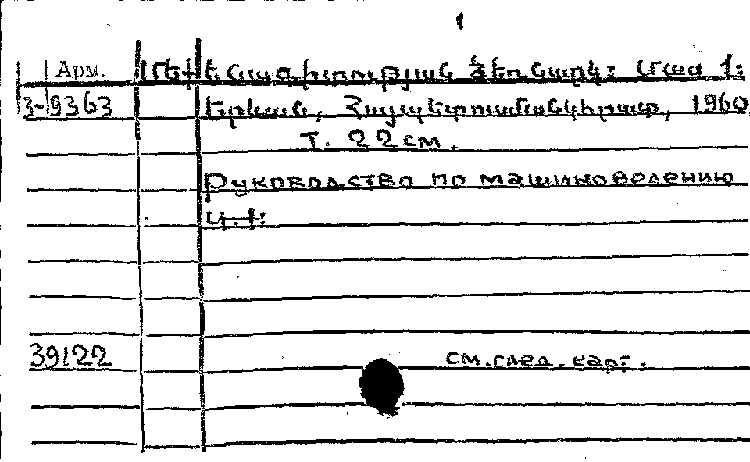 1
Арм. Մեքենագիտության ձեռնարկ: Մաս 1:
3-9363 Երևան, Հայպետուսմանկհրատ, 1960
т. 22 см.
Руководство по машиноведению
ч. 1:
39122 см. след. карт.